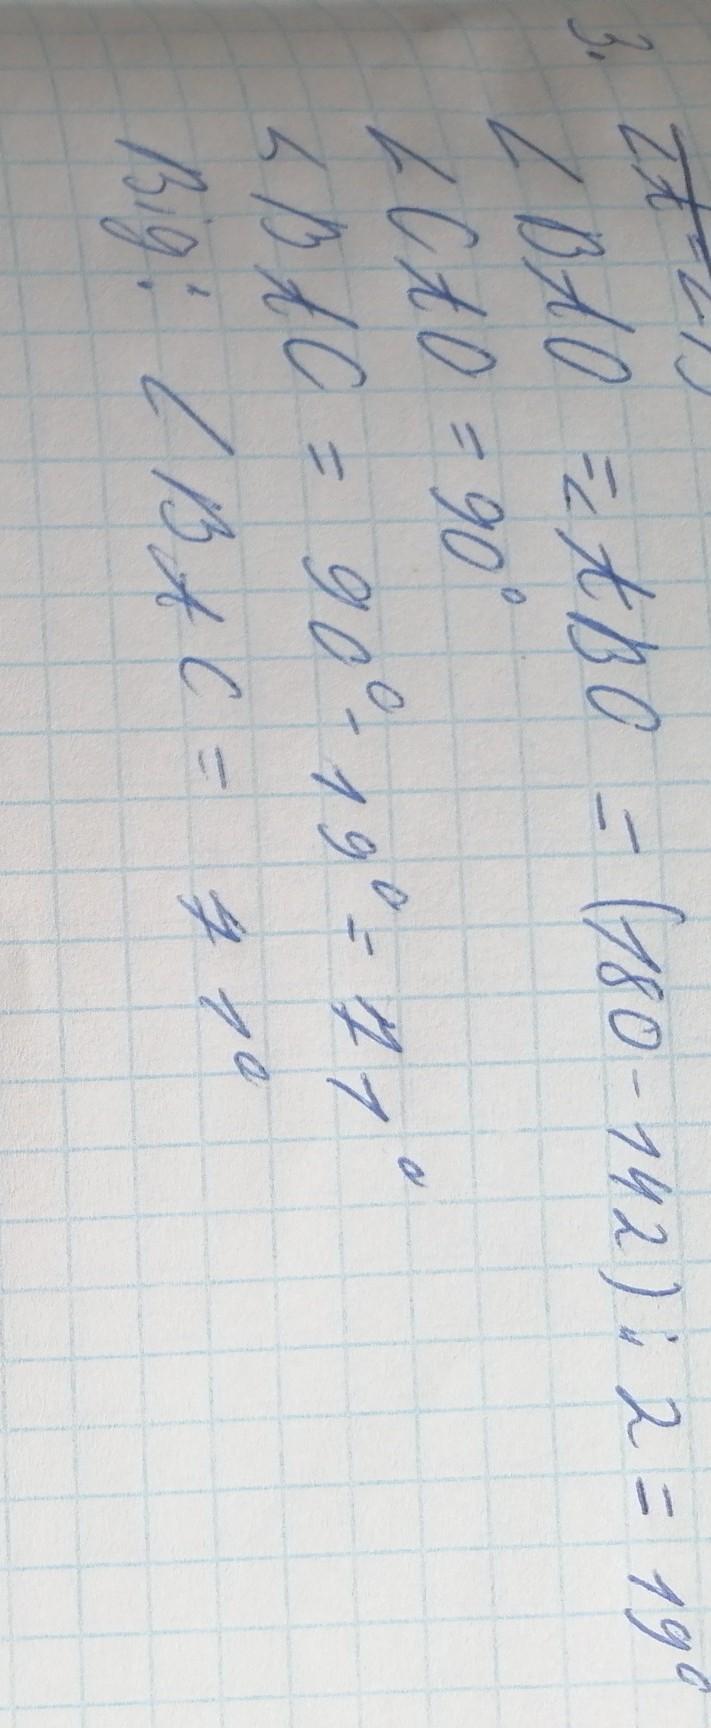 3.
∠BAO = ABO = (180 - 142) : 2 = 19°
∠CAO = 90°
∠BAC = 90° - 19° = 71°
Від: ∠BAC = 71°